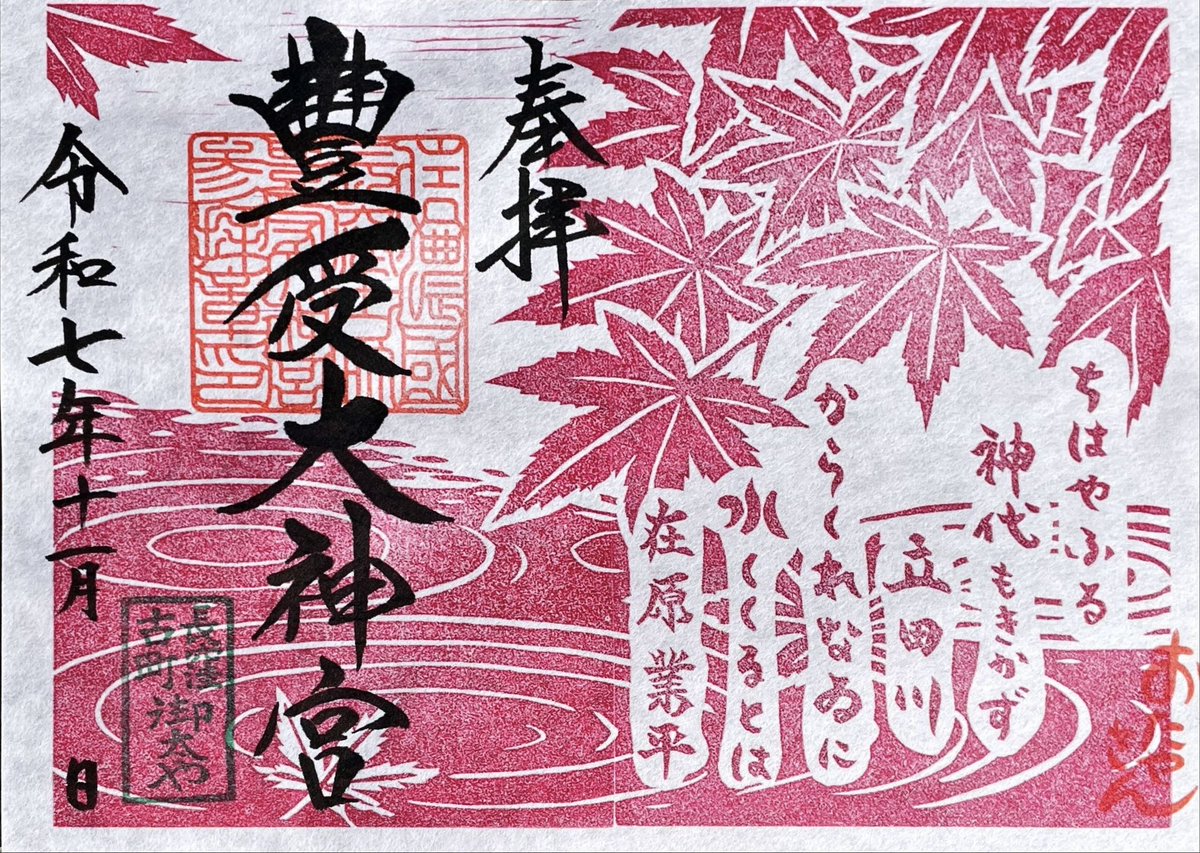 ちはやふる
神代もきかず
立田川
からくれなゐに
水くくるとは
在原業平
奉拝
豐受大神宮
令和七年十一月 日
長窪
古町
御太や